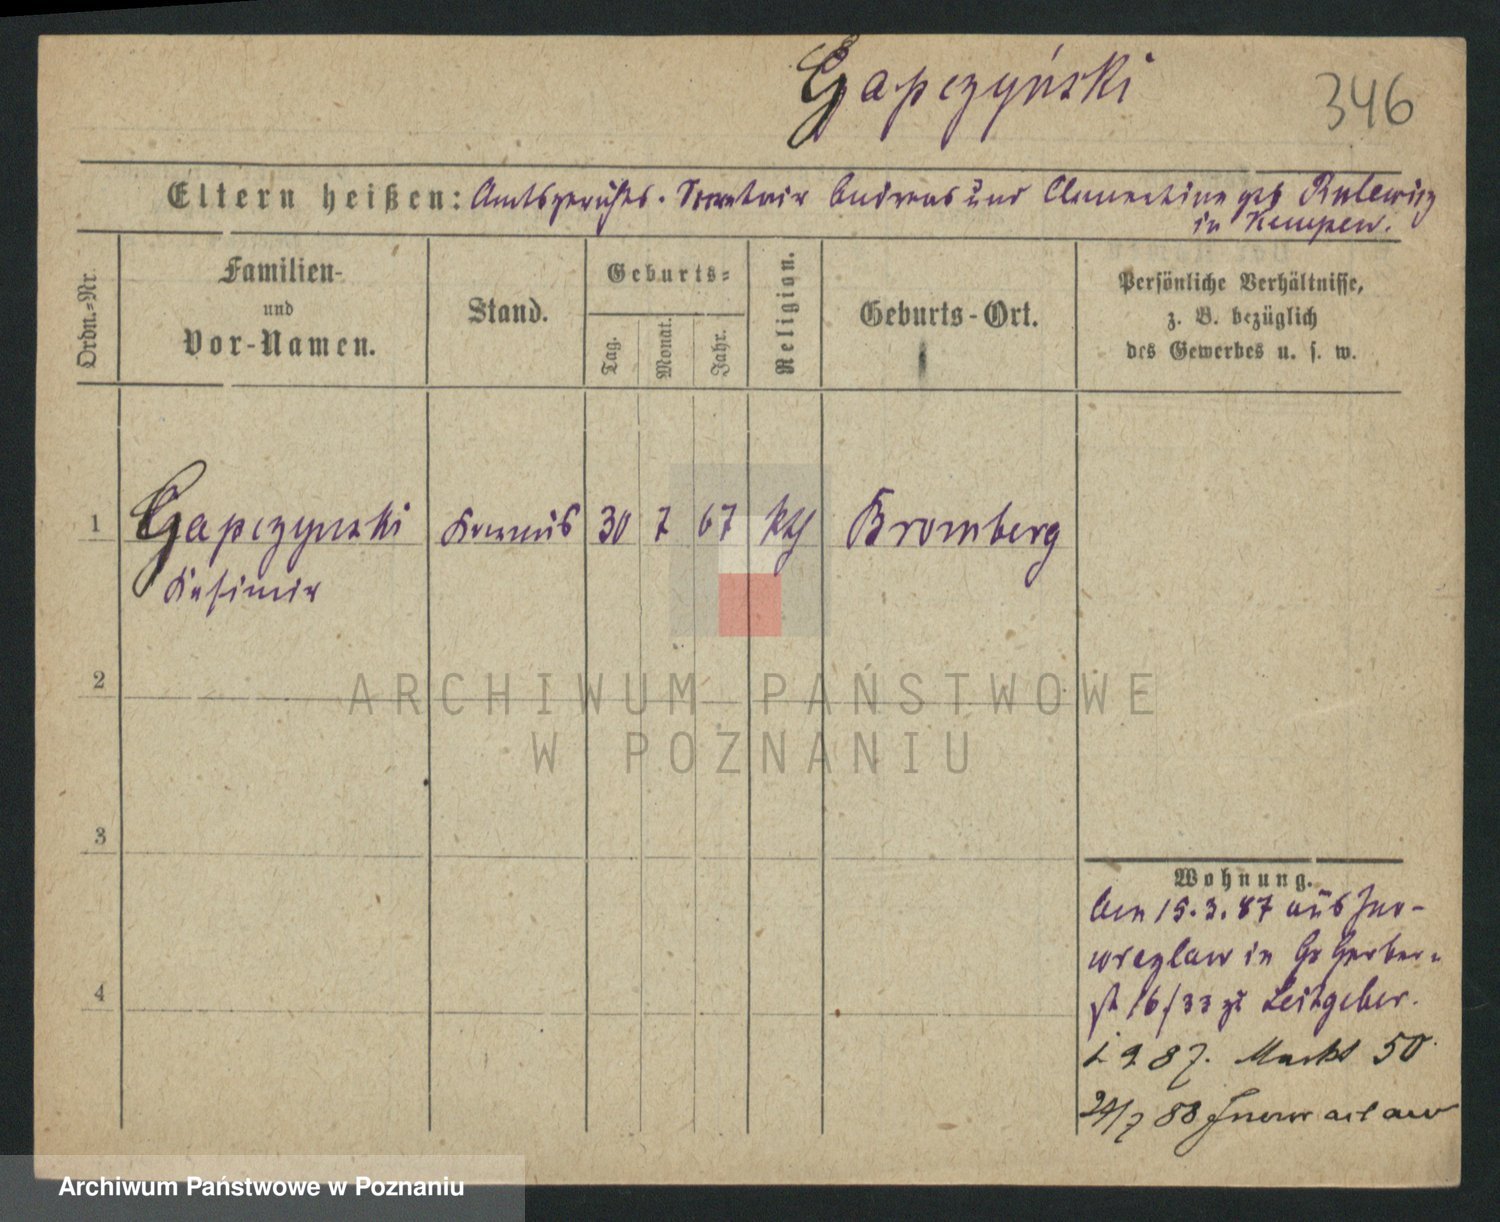 Gapczyński
346
Eltern heißen: Amtsgerichts-Secretair Andreas und Clementine geb Rulewicz
in Kempen.
Ordn.-Nr.
Familien-
und
Vor-Namen.
Stand.
Geburts-
Tag.
Monat.
Jahr.
Religion.
Geburts-Ort.
Persönliche Verhältnisse,
z. B. bezüglich
des Gewerbes u. s. w.
1 Gapczynski Commis 30 7 67 kth Bromberg
Kasimir
2
3
4
Wohnung.
Am 15.3.87 aus Ino-
wrazlaw in Gr Gerber-
st 16/33 zu Leitgeber.
1 9 87. Markt 50
24/7 88 Inowrazlaw
ARCHIWUM PAŃSTWOWE
W POZNANIU
Archiwum Państwowe w Poznaniu